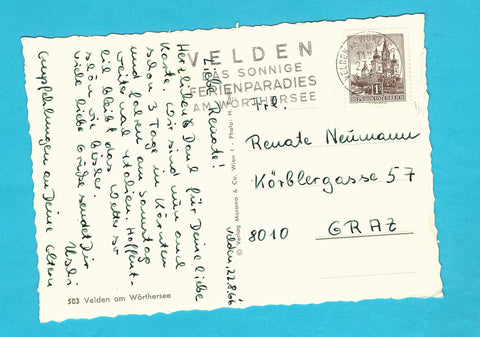 VELDEN
DAS SONNIGE
FERIENPARADIES
AM WÖRTHERSEE
REPUBLIK ÖSTERREICH
Velden, 22.8.66
Liebe Renate!
Herzlichen Dank für Deine liebe
Karte. Wir sind nun auch
schon 3 Tage in Kärnten
und fahren am Samstag
weiter nach Italien. Hoffent-
lich bleibt das Wetter so
schön wie bisher.
Viele liebe Grüße sendet Dir
Usli
Empfehlungen an Deine Eltern
503 Velden am Wörthersee
Frl.
Renate Neumann
Körblergasse 57
8010 GRAZ